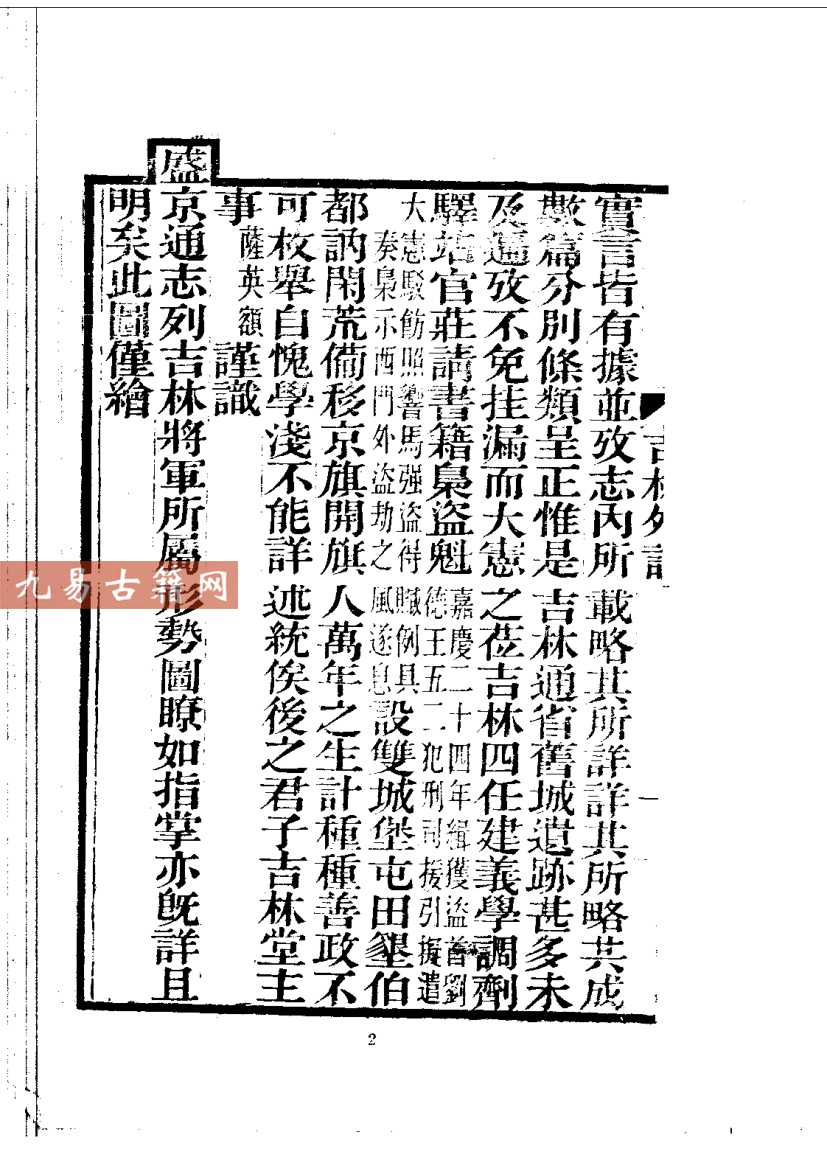 吉林外記
一
實言皆有據並攷志內所載略其所詳詳其所略共成
數篇分別條類呈正惟是吉林通省舊城遺跡甚多未
及遍攷不免挂漏而大憲之莅吉林四任建義學調劑
驛站官莊請書籍梟盜魁嘉慶二十四年緝獲盜首劉德王五二犯刑司援引擬遣
大憲駁飭照響馬强盜得贓例具奏梟示西門外盜劫之風遂息設雙城堡屯田墾伯
都訥閑荒備移京旗開旗人萬年之生計種種善政不
可枚舉自愧學淺不能詳述統俟後之君子吉林堂主
事薩英額謹識
盛京通志列吉林將軍所屬形勢圖瞭如指掌亦既詳且
明矣此圖僅繪
九易古籍网
2